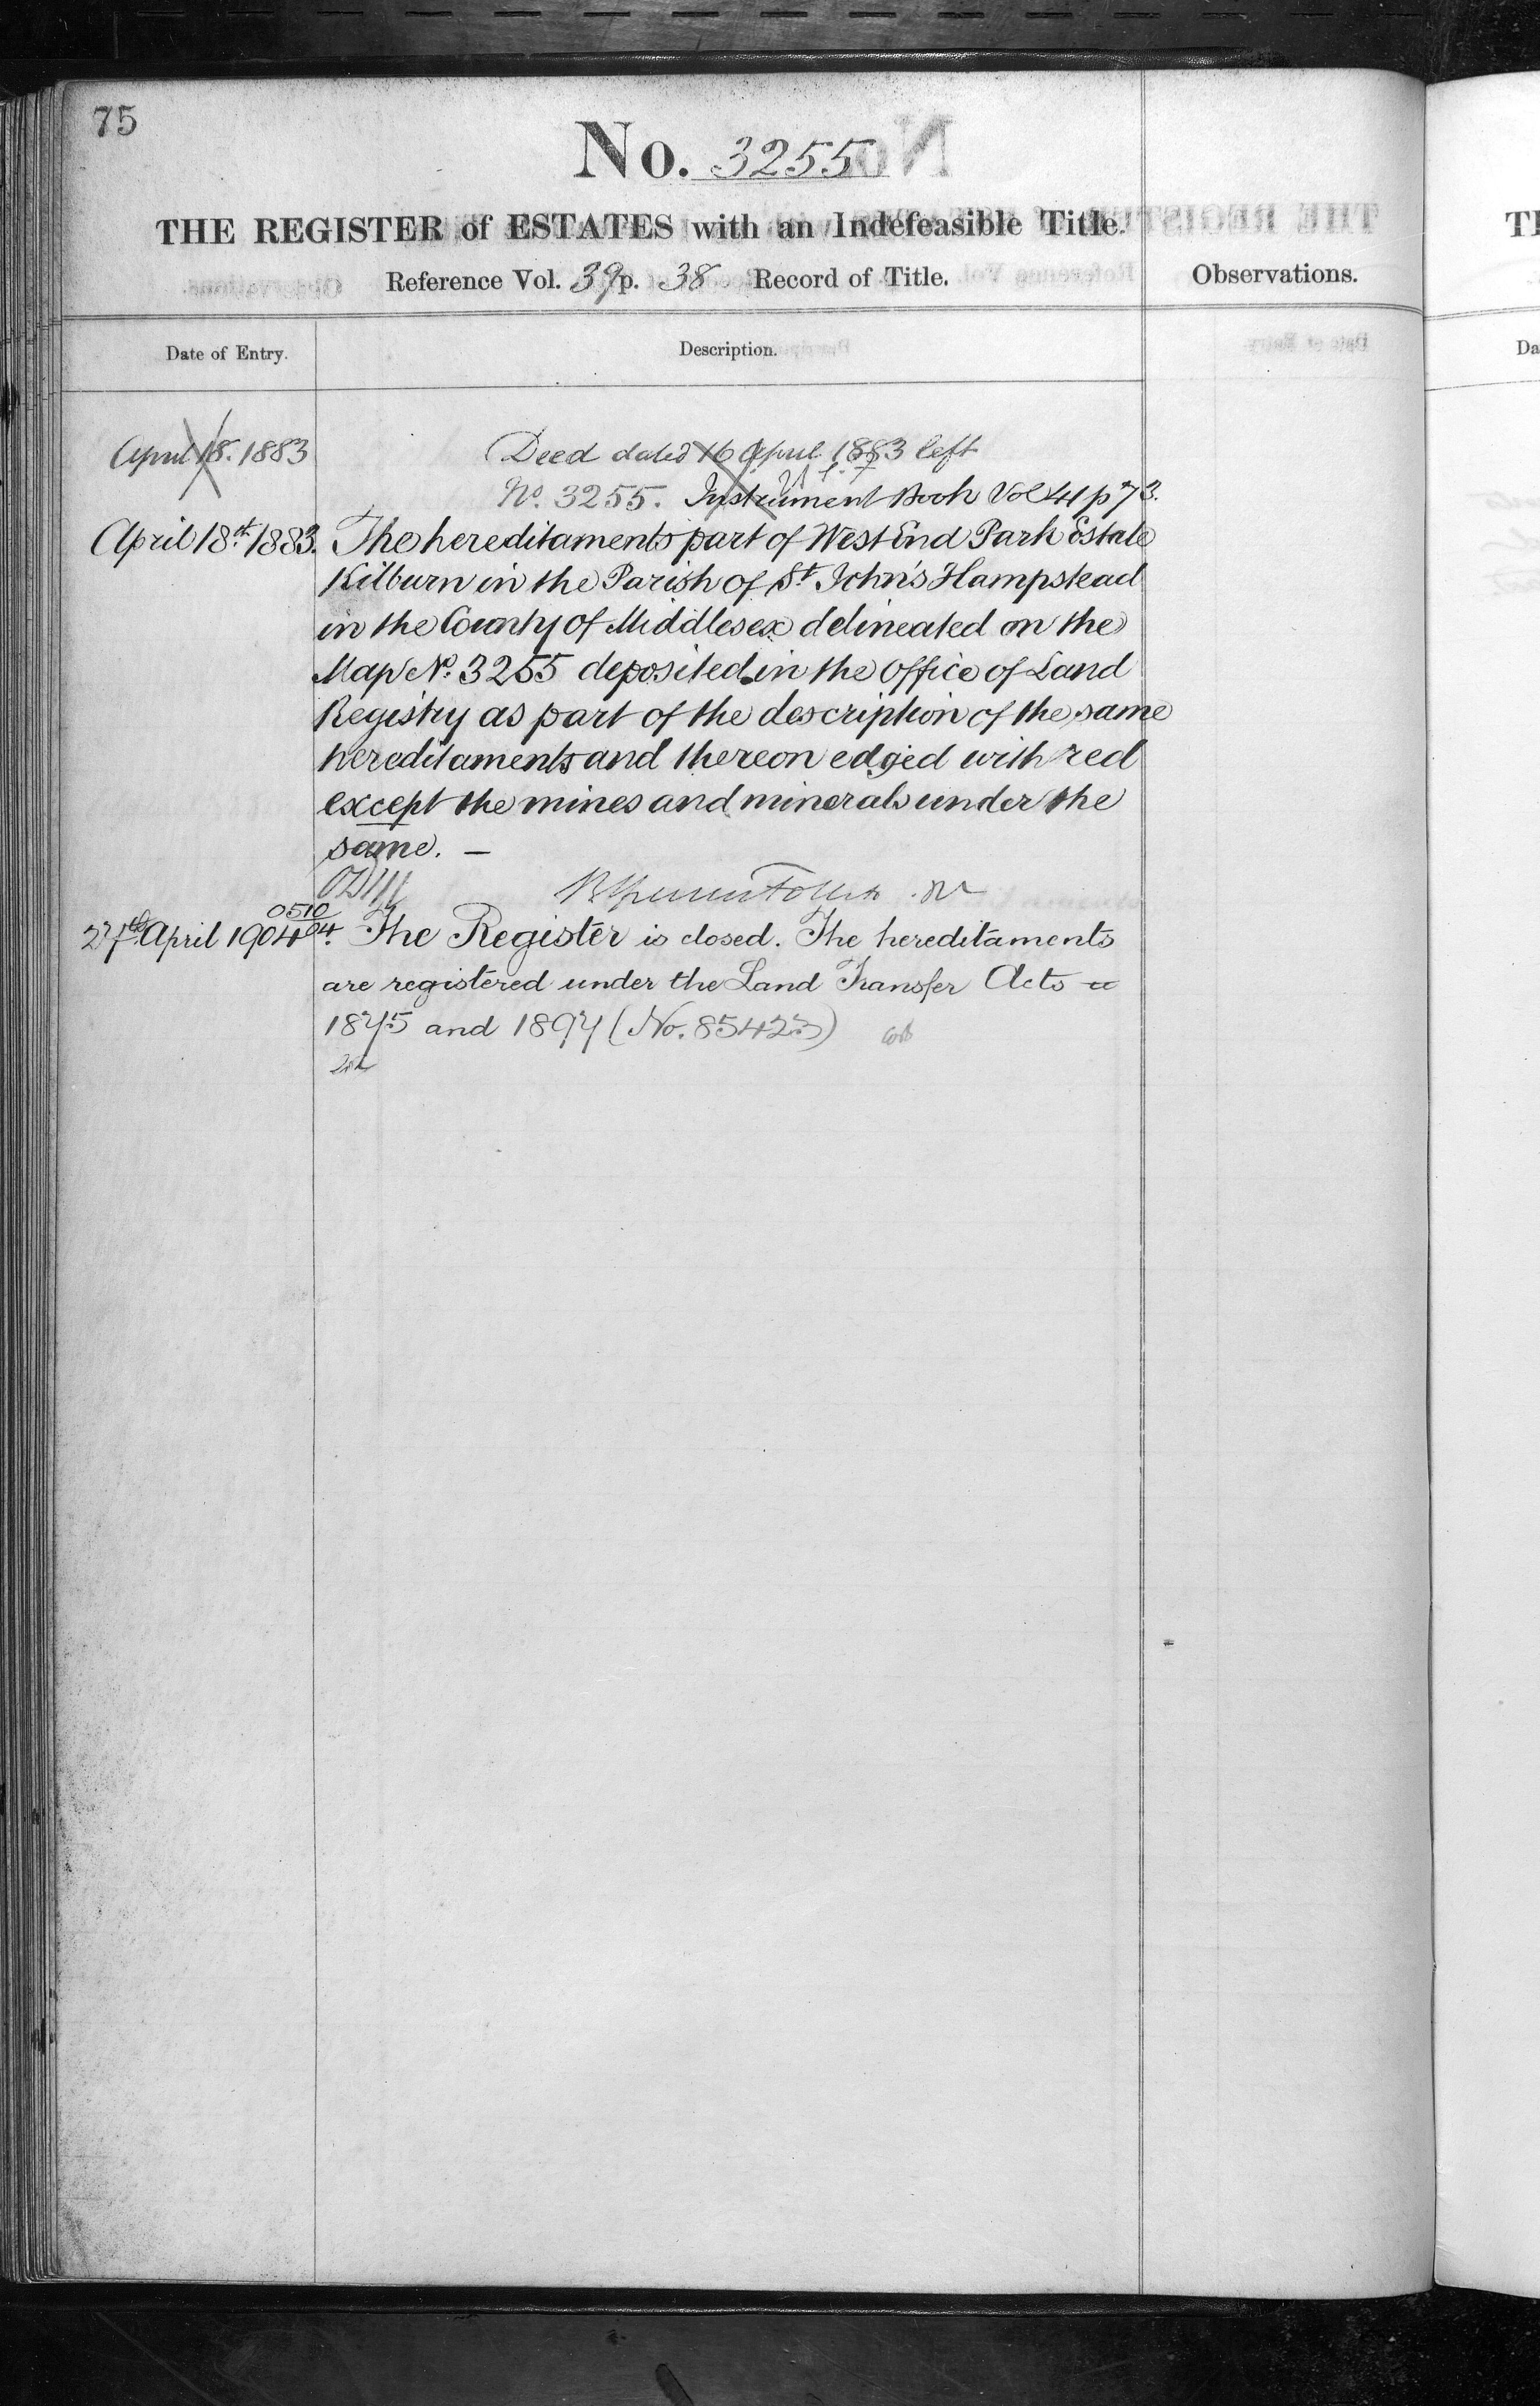 75
No. 3255
THE REGISTER of ESTATES with an Indefeasible Title.
Reference Vol. 39 p. 38 Record of Title.
Observations.
Date of Entry.
Description.
April 18. 1883
Deed dated 16 April 1883 left
No. 3255. Instrument Book Vol 41 p 73.
April 18th 1883.
The hereditaments part of West End Park Estate
Kilburn in the Parish of St. John's Hampstead
in the County of Middlesex delineated on the
Map No. 3255 deposited in the Office of Land
Registry as part of the description of the same
hereditaments and thereon edged with red
except the mines and minerals under the
same. —
0510
04
27th April 1904.
The Register is closed. The hereditaments
are registered under the Land Transfer Acts
1875 and 1897 (No. 85423)